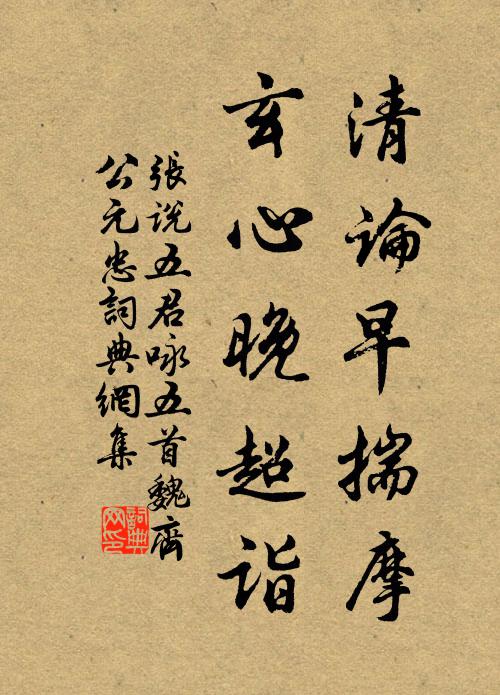 清論早揣摩
玄心晚超詣
張説五君咏五首魏齊
公元忠詞典網集
詞典
网印